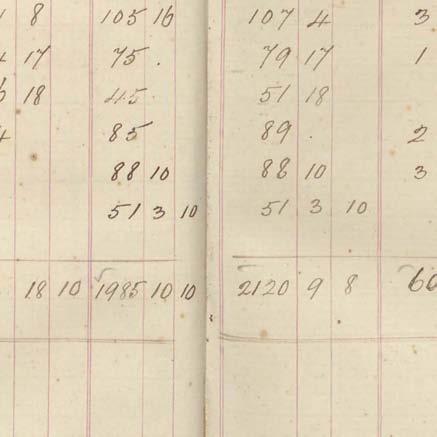 8 105 16 107 4 3
17 75 . 79 17 1
18 45 51 18
4 85 89 . 2
88 10 88 10 3
51 3 10 51 3 10
18 10 1985 10 10 2120 9 8 60